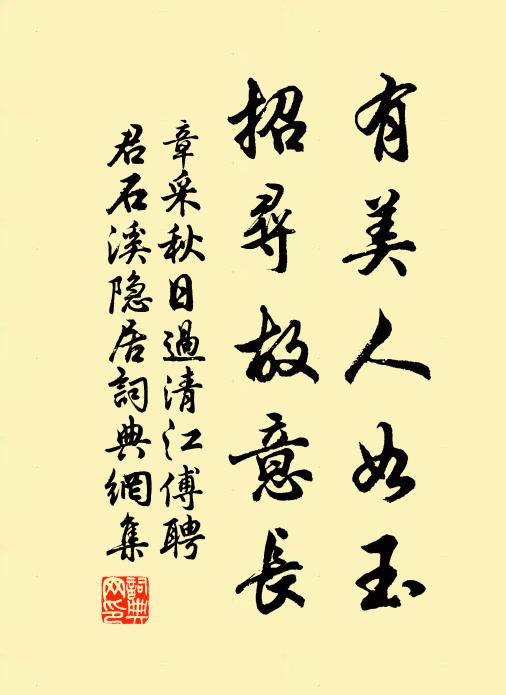 有美人如玉
招尋故意長
章采秋日過清江傅聘
君石溪隐居詞典網集
詞典網印